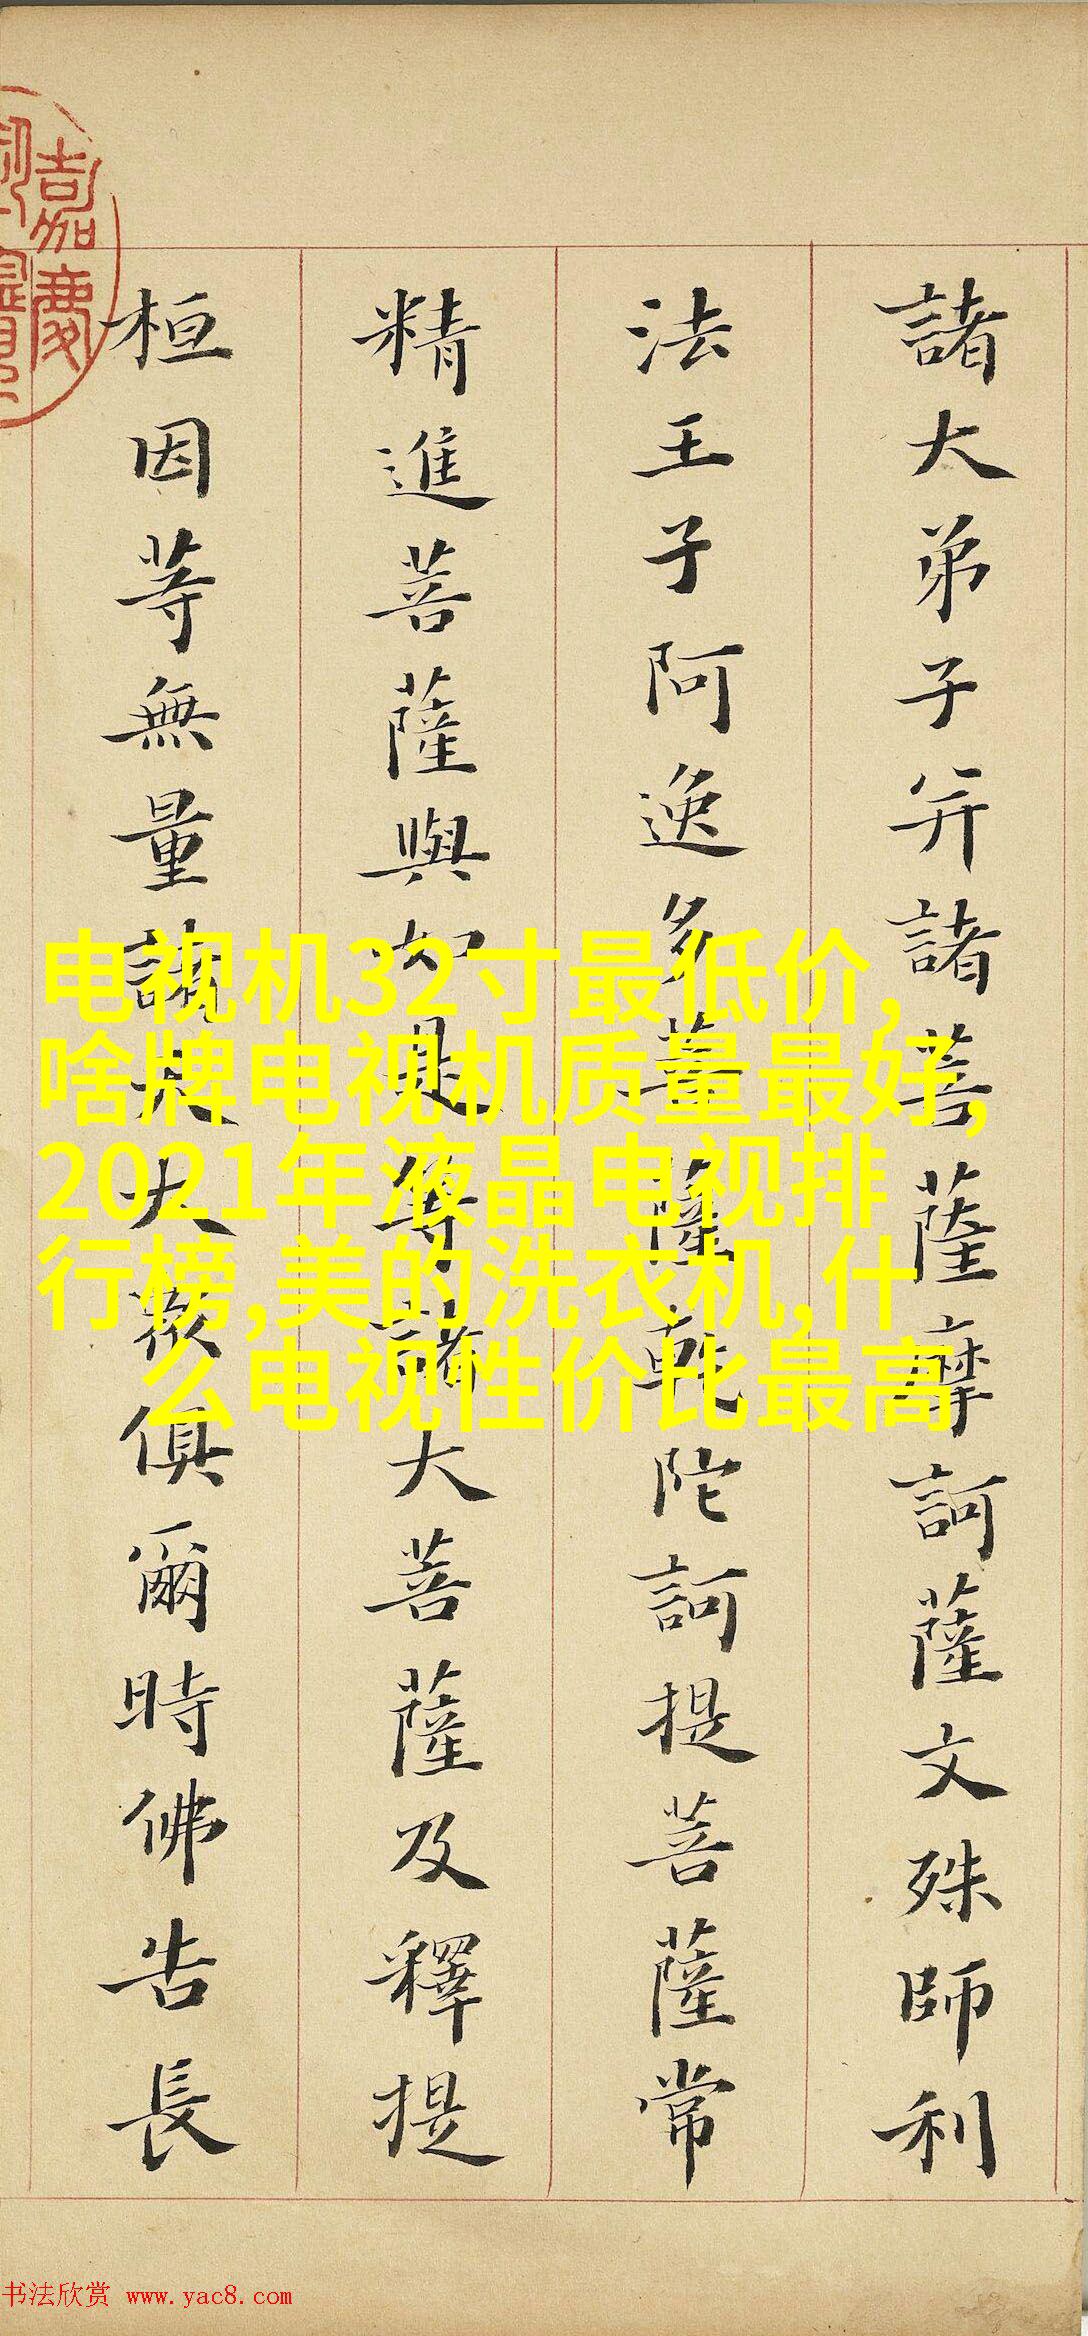 諸大弟子并諸菩薩摩訶薩文殊師利
法王子阿逸多菩薩乾陀訶提菩薩常
精進菩薩與如是等諸大菩薩及釋提
桓因等無量諸天大衆俱爾時佛告長
嘉慶
电视机32寸最低价,
啥牌电视机质量最好,
2021年液晶电视排
行榜,美的洗衣机,什
么电视性价比最高
书法欣赏 www.yac8.com